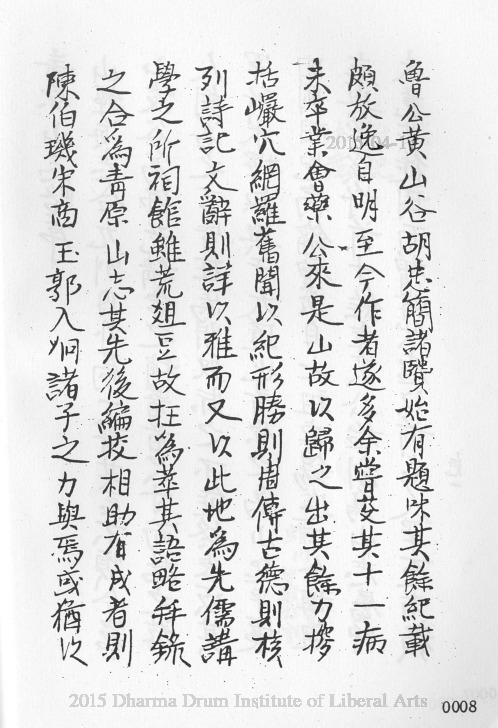 魯公黃山谷胡忠簡諸賢始有題咏其餘紀載
頗放逸自明至今作者遂多余嘗芟其十一病
未卒業會藥公來是山故以歸之出其餘力摉
括巖穴網羅舊聞以紀形勝則周傳古德則核
列詩記文辭則詳以雅而又以此地為先儒講
學之所祠館雖荒爼豆故在為萃其語略并錄
之合爲青原山志其先後編挍相助有成者則
陳伯璣宋商玉郭入焵諸子之力與焉或猶以
2015 Dharma Drum Institute of Liberal Arts
0008